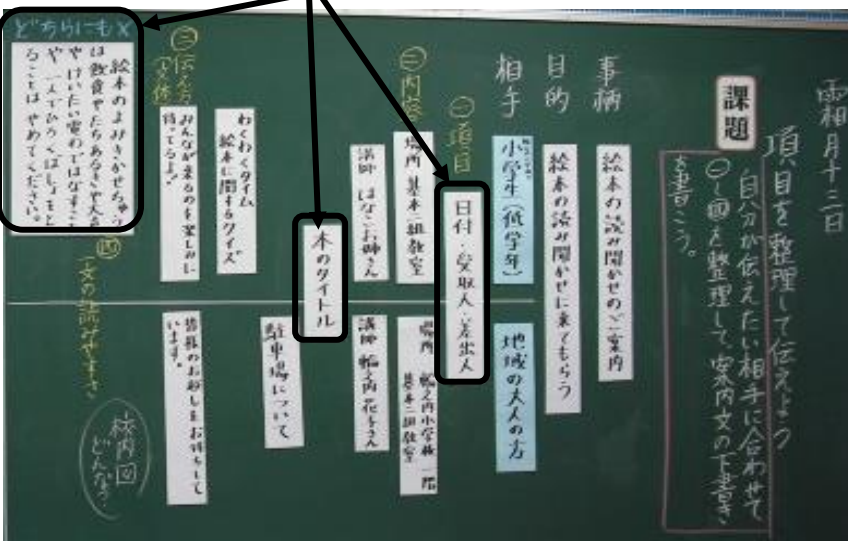 霜月十三日
項目を整理して伝えよう
課題
自分が伝えたい相手に合わせて
㊀~㊃を整理して、案内文の下書き
を書こう。
事柄
絵本の読み聞かせのご案内
目的
絵本の読み聞かせに来てもらう
相手
小学生(低学年)
地域の大人の方
㊀項目
日付・受取人・差出人
㊁内容
場所 基本二組教室
場所 輪之内小学校 一階
基本二組教室
講師 はなこお姉さん
講師 輪之内花子さん
本のタイトル
駐車場について
わくわくタイム
絵本に関するクイズ
㊂伝え方
(文体)
みんなが来るのを楽しみに
待ってるよ。
皆様のお越しをお待ちして
います。
㊃
一文の読みやすさ
校内図
どんな?
どちらにも×
絵本のよみきかせちゅう
は飲食やたちあるきや大声
や、けいたい電わではなすこと
や、一人でひろくばしょをと
ることはやめてください。